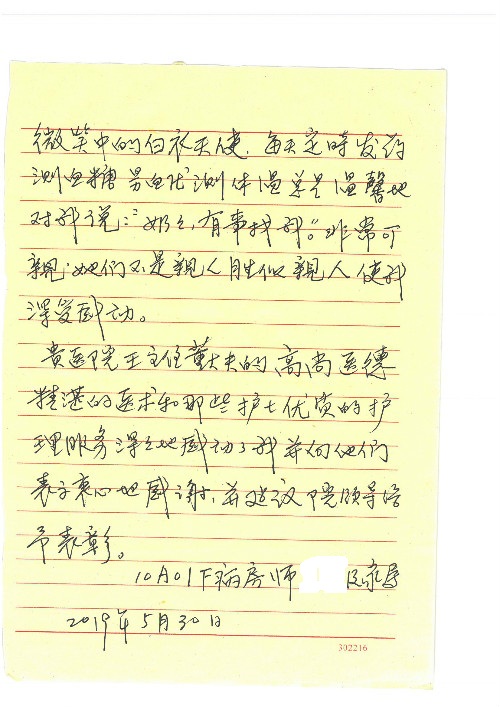 微笑中的白衣天使，每天定時发药
测血糖 量血压 测体温总是温馨地
对我说："奶奶，有事找我。"非常可
親。她们不是親人胜似親人使我
深受感动。
貴医院王主任董大夫的高尚医德
精湛的医术和那些护士优质的护
理服务深深地感动了我并向他们
表示衷心地感谢，并建议院领导给
予表彰。
10A01下病房师 及家属
2019年5月30日
302216